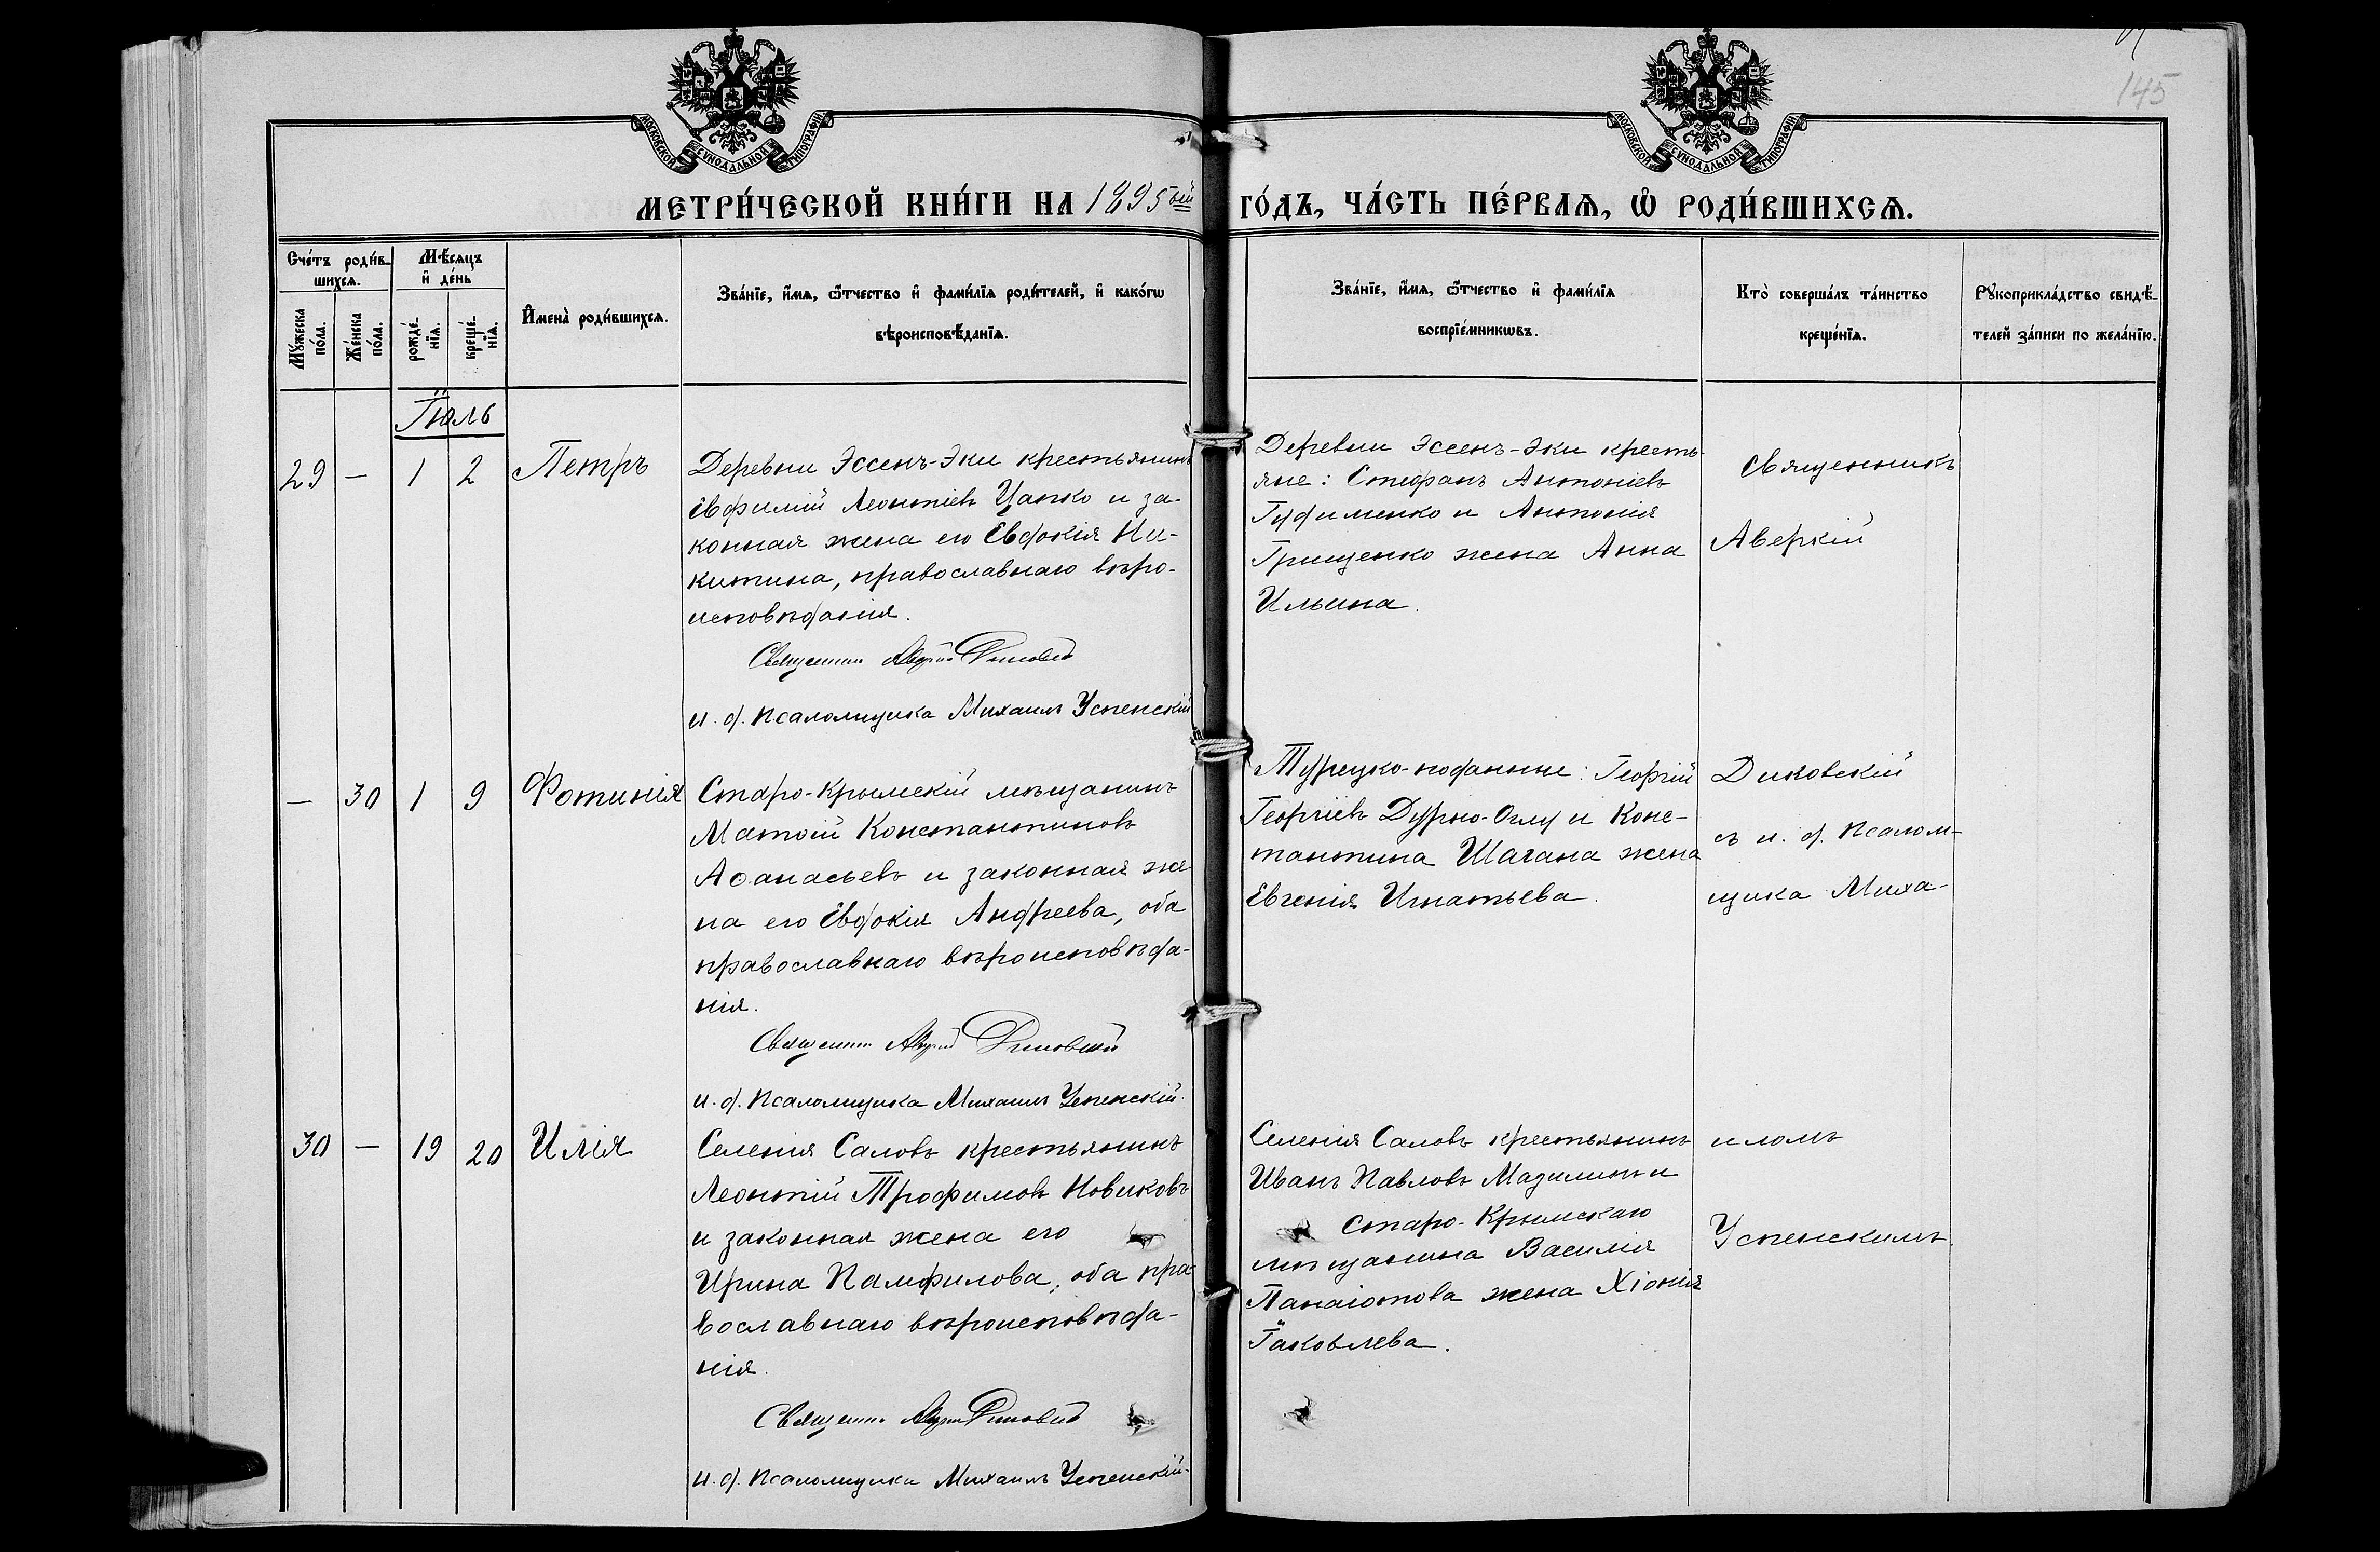 145
МОСКОВСКОЙ СѴНОДАЛЬНОЙ ТИПОГРАФІИ
МОСКОВСКОЙ СѴНОДАЛЬНОЙ ТИПОГРАФІИ
МЕТРИ́ЧЕСКОЙ КНИ́ГИ НА 1895ый ГО́ДЪ, ЧА́СТЬ ПЕ́РВАѦ, Ѡ҆ РОДИ́ВШИХСѦ.
Сче́тъ роди́в-
шихсѧ.
Мѣ́сѧцъ
и҆ де́нь
Мꙋ́жеска
по́ла.
Же́нска
по́ла.
рожде́-
нїѧ.
креще́-
нїѧ.
И҆мена̀ роди́вшихсѧ.
Зва́нїе, и҆́мѧ, ѻ҆́тчество и҆ фами́лїѧ роди́телей, и҆ како́гѡ
вѣроисповѣ́данїѧ.
Зва́нїе, и҆́мѧ, ѻ҆́тчество и҆ фами́лїѧ
воспрїе́мникѡвъ.
Кто̀ соверша́лъ та́инство
креще́нїѧ.
Рꙋкоприкла́дство свидѣ́-
телей за́писи по жела́нїю.
Іюль
29 — 1 2 Петръ
Деревни Эссенъ-Эки крестьянинъ
Евфимій Леонтіевъ Цапко и за-
конная жена его Евдокія Ни-
китина, православнаго вѣро-
исповѣданія.
Священникъ Аверкій Диковскій
и. д. псаломщика Михаилъ Успенскій
Деревни Эссенъ-Эки кресть-
яне: Стефанъ Антоніевъ
Гудименко и Антонія
Грищенко жена Анна
Ильина.
Священникъ
Аверкій
— 30 1 9 Фотинія
Старо-Крымскій мѣщанинъ
Матѳій Константиновъ
Аѳанасьевъ и законная же-
на его Евдокія Андреева, оба
православнаго вѣроисповѣда-
нія.
Священникъ Аверкій Диковскій
и. д. псаломщика Михаилъ Успенскій.
Турецко-поданные: Георгій
Георгіевъ Дурно-Оглу и Конс-
тантина Шагана жена
Евгенія Игнатьева.
Диковскій
съ и. д. псалом-
щика Миха-
30 — 19 20 Илія
Селенія Саловъ крестьянинъ
Леонтій Трофимовъ Новиковъ
и законная жена его
Ирина Памфилова, оба пра-
вославнаго вѣроисповѣда-
нія.
Священникъ Аверкій Диковскій
и. д. псаломщика Михаилъ Успенскій.
Селенія Саловъ крестьянинъ
Иванъ Павловъ Мазилинъ и
Старо-Крымскаго
мѣщанина Василія
Панаіотова жена Хіонія
Іаковлева.
иломъ
Успенскимъ.